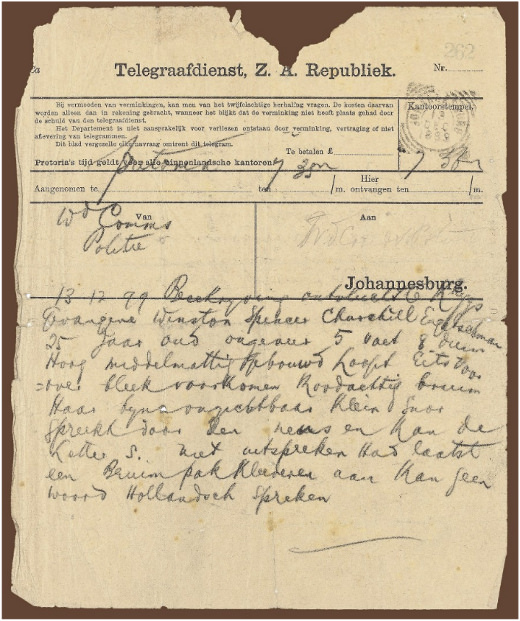 262
Telegraafdienst, Z. A. Republiek.
Nr.
Bij vermoeden van verminkingen, kan men van het twijfelachtige herhaling vragen. De kosten daarvan
worden alleen dan in rekening gebracht, wanneer het blijkt dat de verminking niet heeft plaats gehad door
de schuld van den telegraafdienst.
Het Departement is niet aansprakelijk voor verliezen ontstaan door verminking, vertraging of niet
aflevering van telegrammen.
Dit blad vergezelle elke navraag omtrent dit telegram.
Kantoorstempel.
Te betalen £
Pretoria's tijd geldt voor alle binnenlandsche kantoren
Pretoria
Hier
Aangenomen te
ten
/m. ontvangen ten
/m.
Van
Aan
Wd Comms
Politie
Johannesburg.
13 12 99
Gevangene Winston Spencer Churchill Engelschman
25 jaar oud ongeveer 5 voet 8 duim
Hoog middelmatig gebouwd Loopt
over bleek voorkomen Roodachtig bruin
Haar byna onzichtbaar Klein Snor
Spreekt door den neus en Kan de
Letter S. niet uitspreken Had laatst
een Bruin pak Kleederen aan Kan geen
woord Hollandsch Spreken